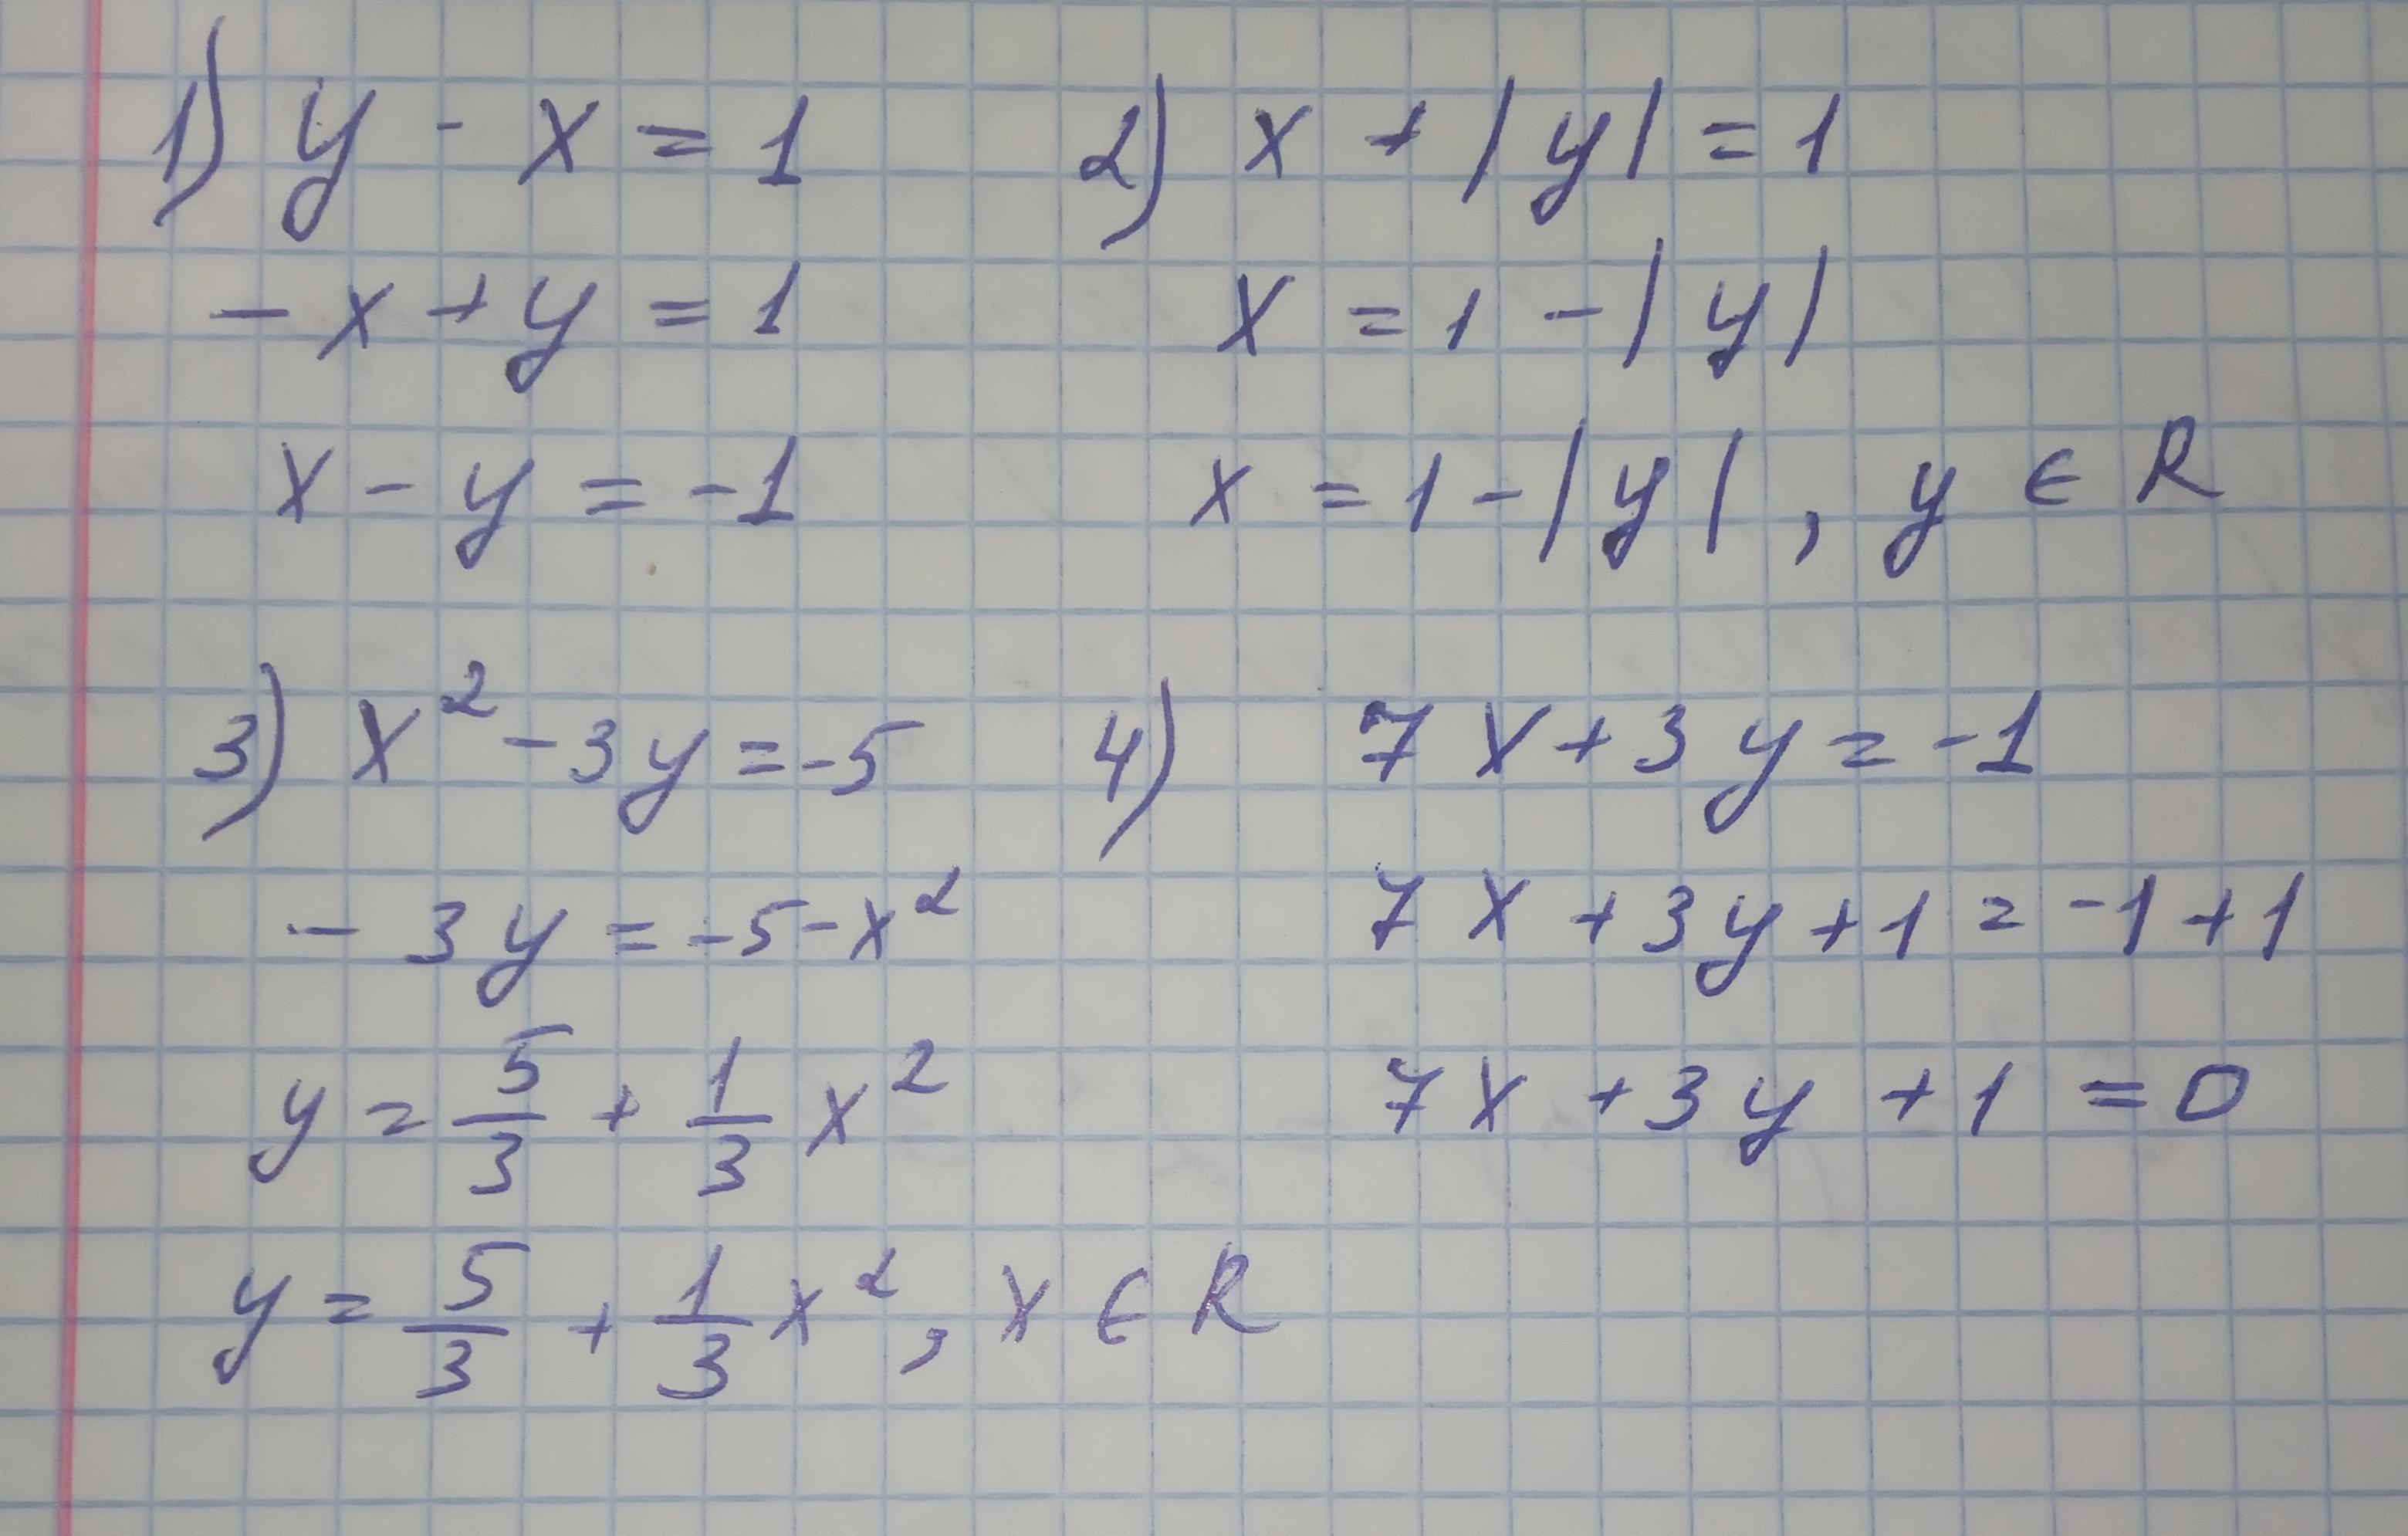 1) y - x = 1
- x + y = 1
x - y = -1
2) x + |y| = 1
x = 1 - |y|
x = 1 - |y|, y ∈ R
3) x² - 3y = -5
- 3y = -5 - x²
y = 5/3 + 1/3 x²
y = 5/3 + 1/3 x², x ∈ R
4) 7x + 3y = -1
7x + 3y + 1 = -1 + 1
7x + 3y + 1 = 0